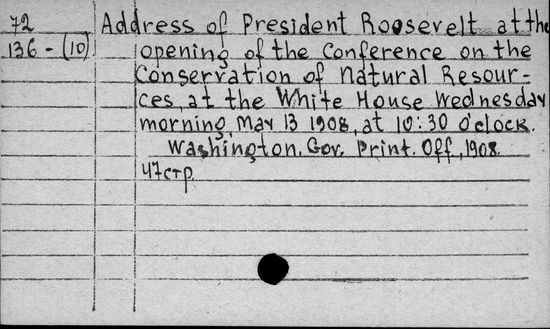 72 Address of President Roosevelt at the
136 - (10) opening of the Conference on the
Conservation of Natural Resour-
ces, at the White House Wednesday
morning, May 13 1908, at 10:30 o'clock.
Washington, Gov. Print. Off., 1908.
47стр.